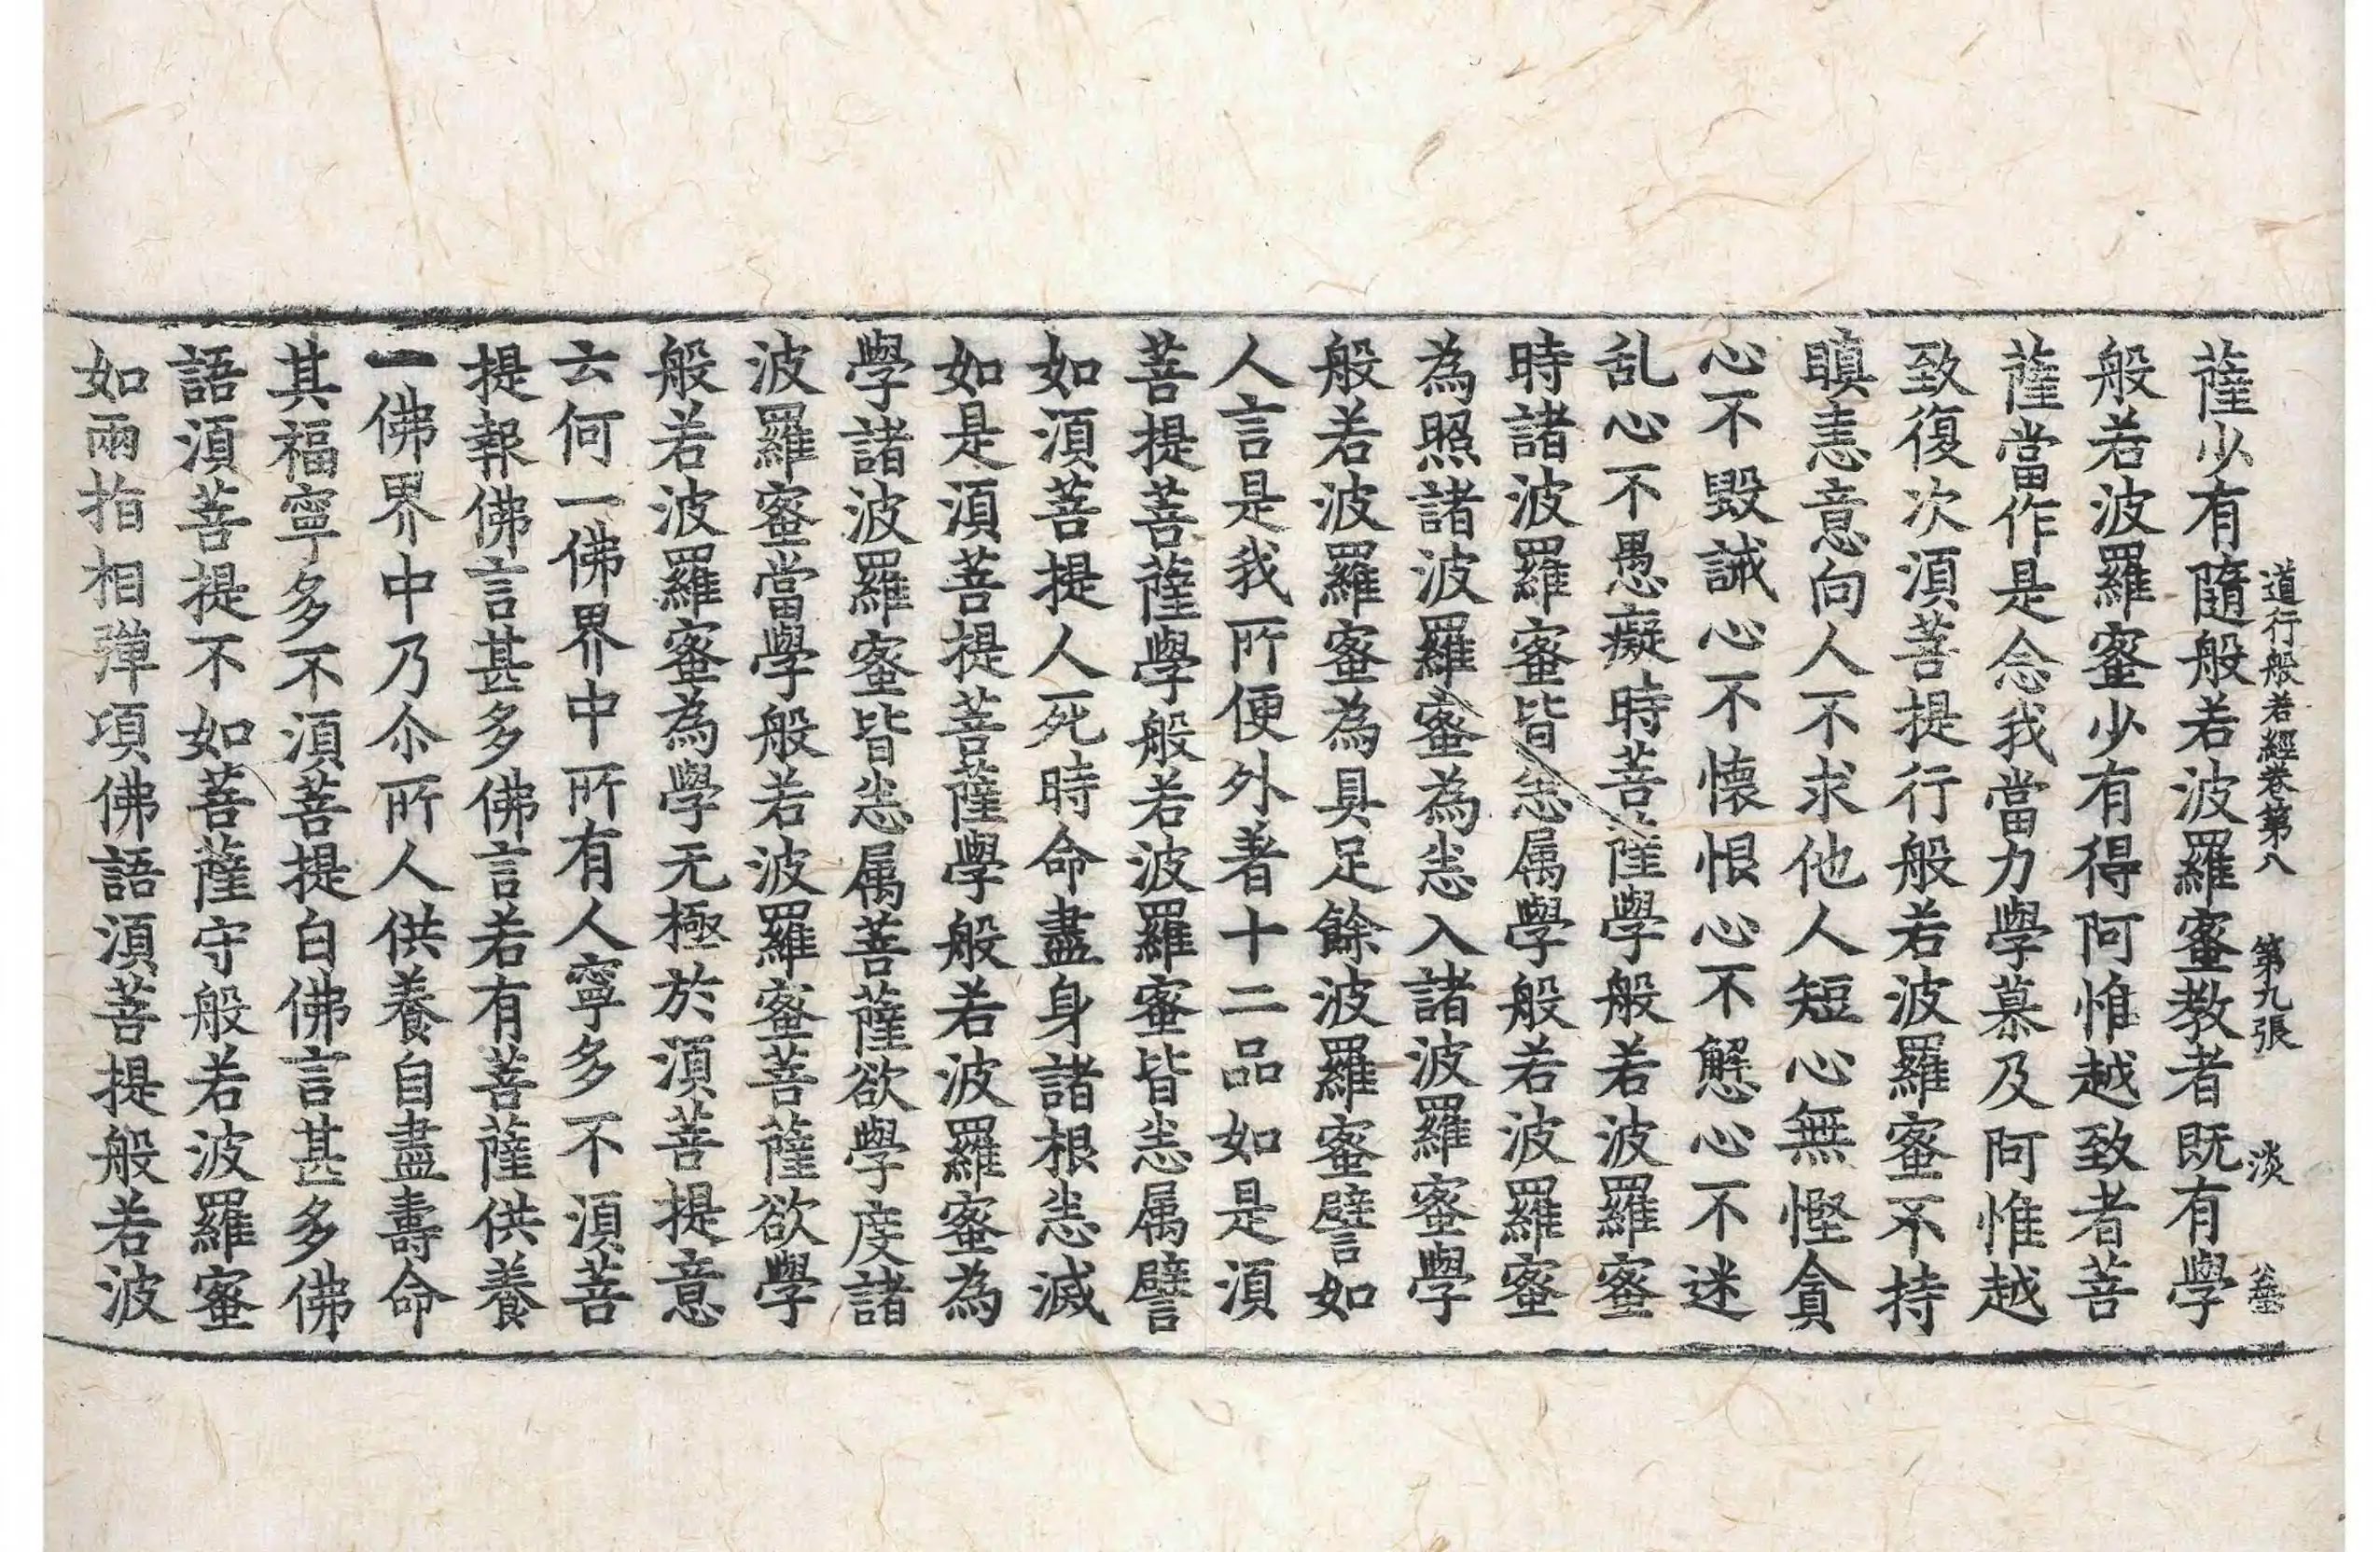 道行般若經卷第八　第九張　淡
薩少有隨般若波羅蜜教者既有學
般若波羅蜜少有得阿惟越致者菩
薩當作是念我當力學慕及阿惟越
致復次須菩提行般若波羅蜜不持
瞋恚意向人不求他人短心無慳貪
心不毀誡心不懷恨心不懈心不迷
乱心不愚癡時菩薩學般若波羅蜜
時諸波羅蜜皆悉属學般若波羅蜜
為照諸波羅蜜為悉入諸波羅蜜學
般若波羅蜜為具足餘波羅蜜譬如
人言是我所便外著十二品如是須
菩提菩薩學般若波羅蜜皆悉属譬
如須菩提人死時命盡身諸根悉滅
如是須菩提菩薩學般若波羅蜜為
學諸波羅蜜皆悉属菩薩欲學度諸
波羅蜜當學般若波羅蜜菩薩欲學
般若波羅蜜為學无極於須菩提意
云何一佛界中所有人寧多不須菩
提報佛言甚多佛言若有菩薩供養
一佛界中乃尒所人供養自盡壽命
其福寧多不須菩提白佛言甚多佛
語須菩提不如菩薩守般若波羅蜜
如兩指相彈頃佛語須菩提般若波